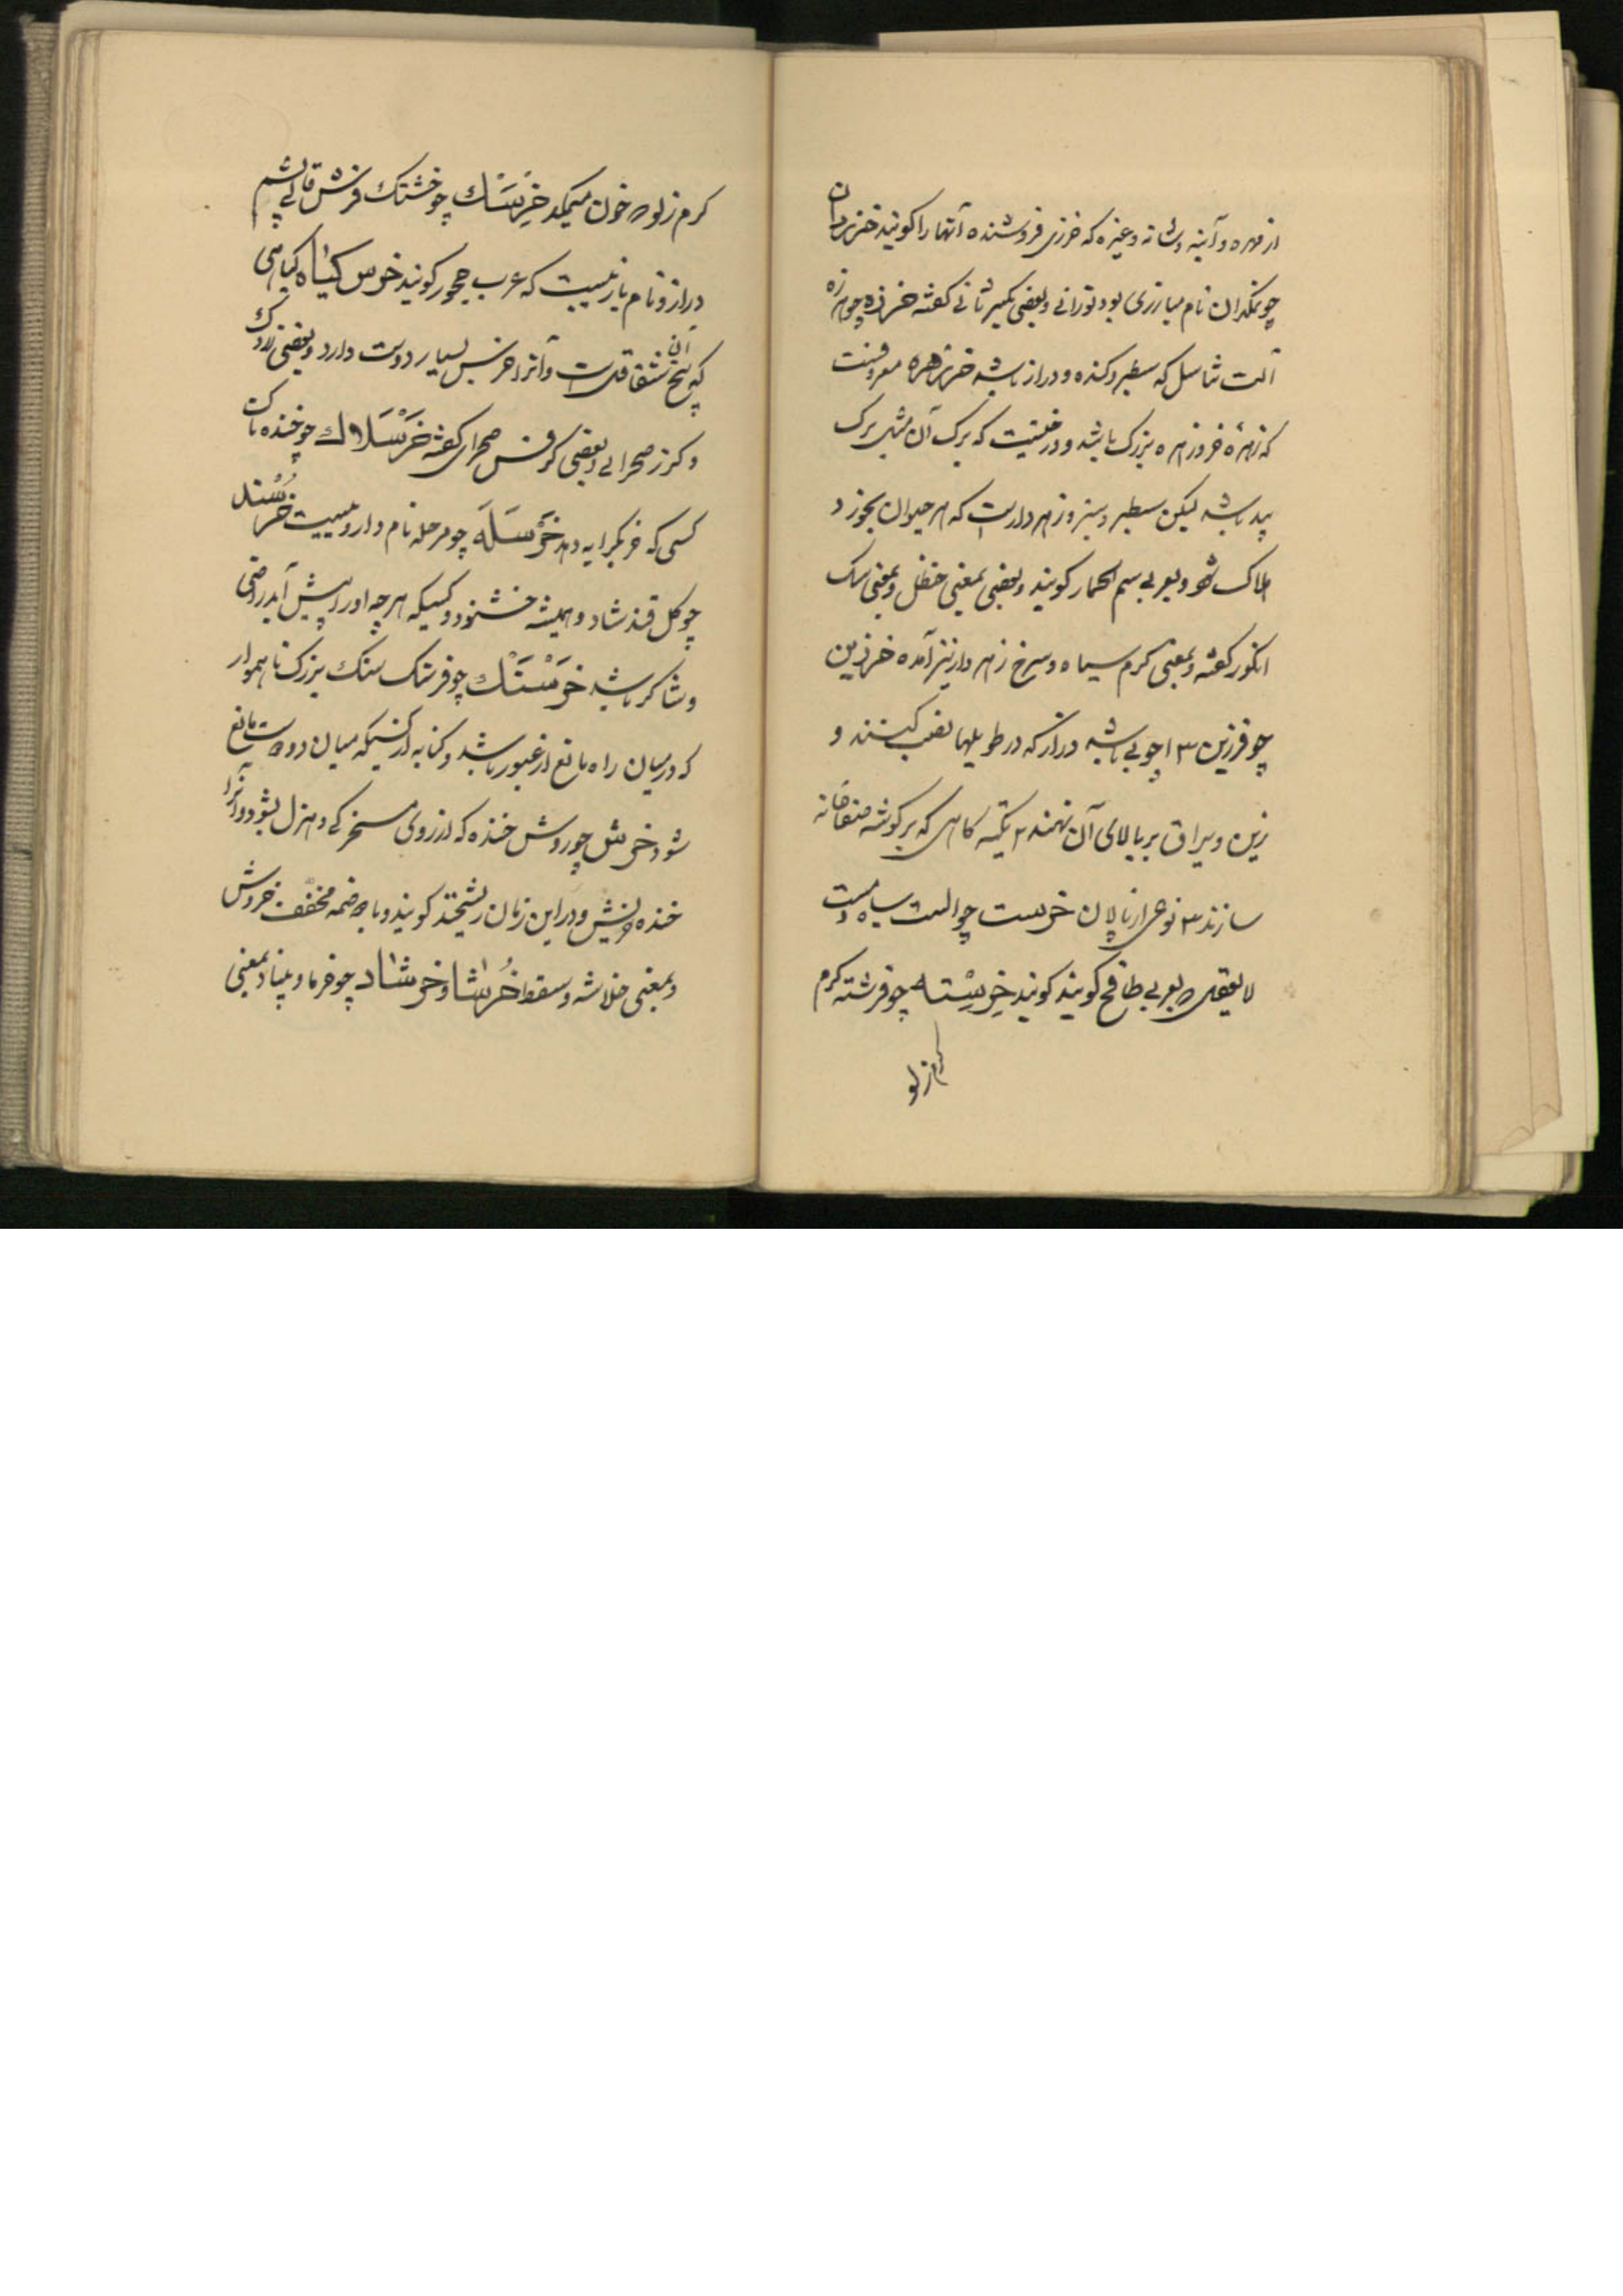 از مهره و آینه و شانه و غیره که خرزی فروشنده آنها را کویند خزروان
چو نمکدان نام مبارزی بود تورانی و بعضی بکسر ثانی کفته خرزه چو هرزه
آلت تناسل که سطبر و کنده و دراز باشد خرزهره معروفست
که زهرهٔ خر و زهره بزرک باشد و درختیست که برک آن مثل برک
بید باشد لیکن سطبر و سبز و زهردار است که هر حیوان بخورد
هلاک شود و بعربی سم الحمار کویند و بعضی بمعنی حنظل و بمعنی سک
انکور کفته و بمعنی کرم سیاه و سرخ زهردار نیز آمده خرزین
چو فرزین ۳ ا چوبی باشد دراز که در طویلها نصب کنند و
زین و یراق بر بالای آن نهند ۲ تکیه کاهی که بر کوشه صفها
سازند ۳ نوعی از پالان خرست چو الست سیاه مست
لا یعقل و بعربی طافح کویند خرسته چو فرشته کرم
کرم زلو
کرم زلو خون میمکد خرسک چو خشتک فرش قالی پشم
دراز و نام بازیست که عرب حجوره کویند خرس کیاه کیاهی
که بیخ آن شقاقل است و آنرا خرس بسیار دوست دارد و بعضی
و کزر صحرایی و بعضی کرفس صحرای کفته خرسلاک چو خنده ناک
کسی که خر بکرایه دهد خرسله چو مرحله نام دارویست خرسند
چو کل قند شاد و همیشه خشنود و کسیکه هر چه او را پیش آید راضی
و شاکر باشد خرسنک چو فرسنک سنک بزرک ناهموار
که در میان راه مانع از عبور باشد و کنایه از کسیکه میان دو دوست مانع
شود خرش چو روش خنده که از روی مسخرکی و هزل بشود و آنرا
خنده خریش و در این زمان ریشخند کویند و با ضمه مخفف خروش
و بمعنی خلاشه و سقط خرشا و خرشاد چو خرما و بنیاد بمعنی